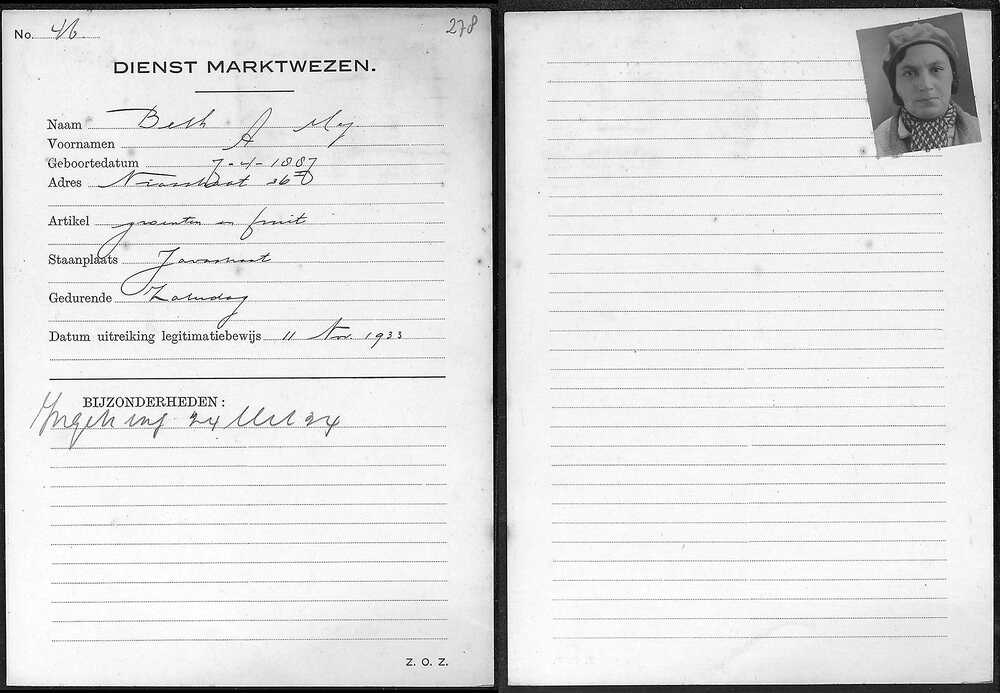 No. 46
278
DIENST MARKTWEZEN.
Naam Beth Mej.
Voornamen A
Geboortedatum 7-4-1887
Adres Niasstraat 36
Artikel groenten en fruit
Staanplaats Javastraat
Gedurende Zaterdag
Datum uitreiking legitimatiebewijs 11 Nov. 1933
BIJZONDERHEDEN:
24
Z. O. Z.